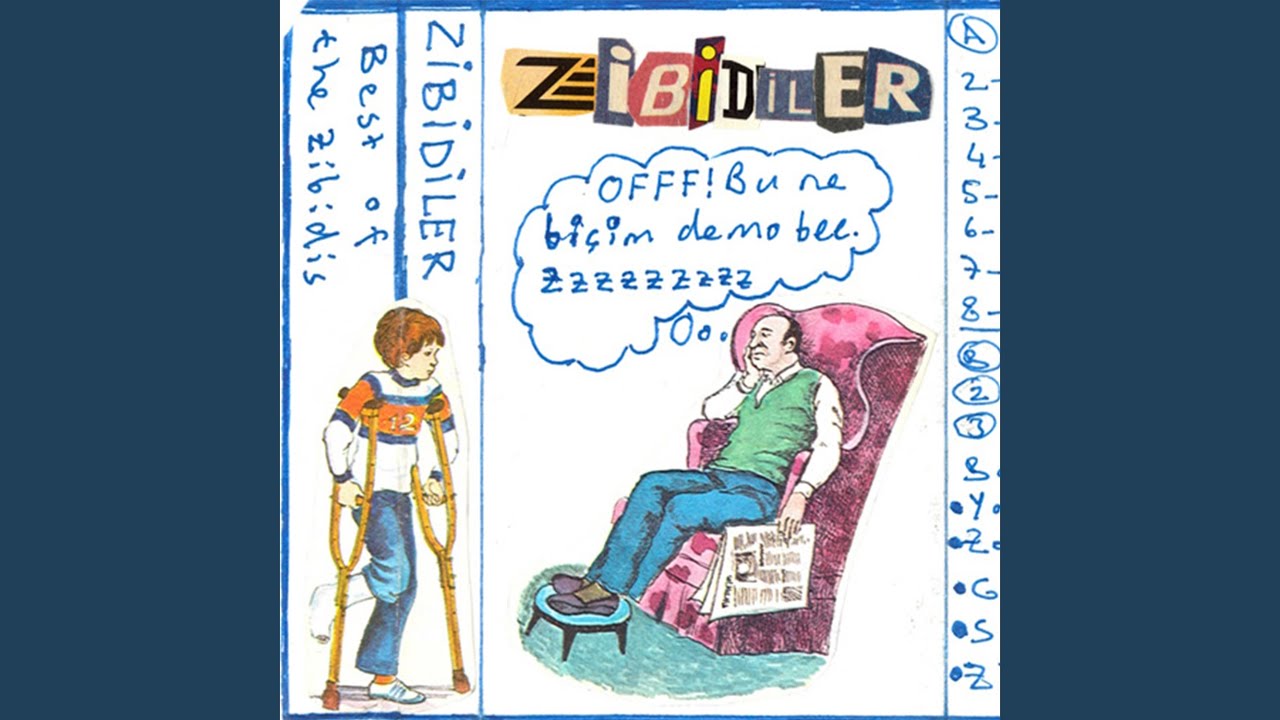 Best of
the Zibidis
ZİBİDİLER
ZİBİDİLER
OFFF! Bu ne
biçim demo bee.
Zzzzzzzzz
12
A
2-
3-
4-
5-
6-
7-
8-
B
2
3
B.
•Y.
•Z.
•G
•S
•Z